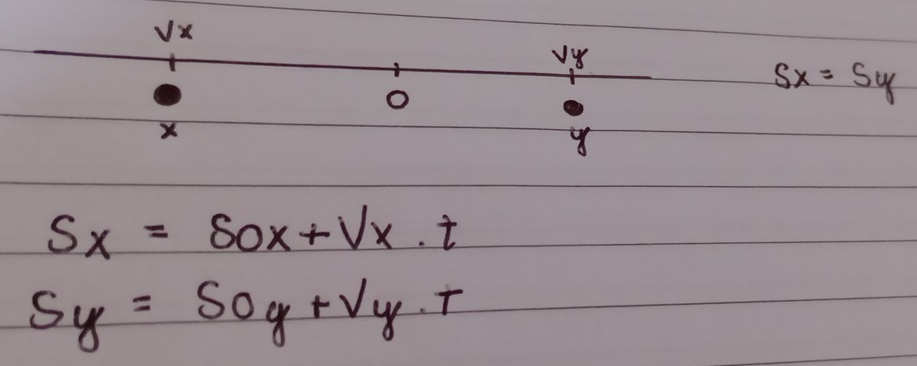 Vx
Vy
Sx = Sy
O
x
y
Sx = Sox + Vx . t
Sy = Soy + Vy . T